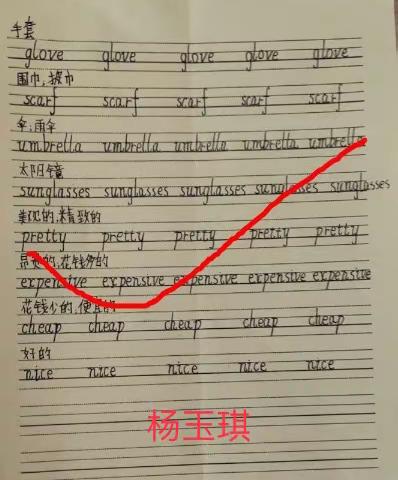 手套
glove glove glove glove glove
围巾;披巾
scarf scarf scarf scarf scarf
伞;雨伞
umbrella umbrella umbrella umbrella umbrella
太阳镜
sunglasses sunglasses sunglasses sunglasses sunglasses
美观的,精致的
pretty pretty pretty pretty pretty
昂贵的,花钱多的
expensive expensive expensive expensive expensive
花钱少的,便宜的
cheap cheap cheap cheap cheap
好的
nice nice nice nice nice
杨玉琪